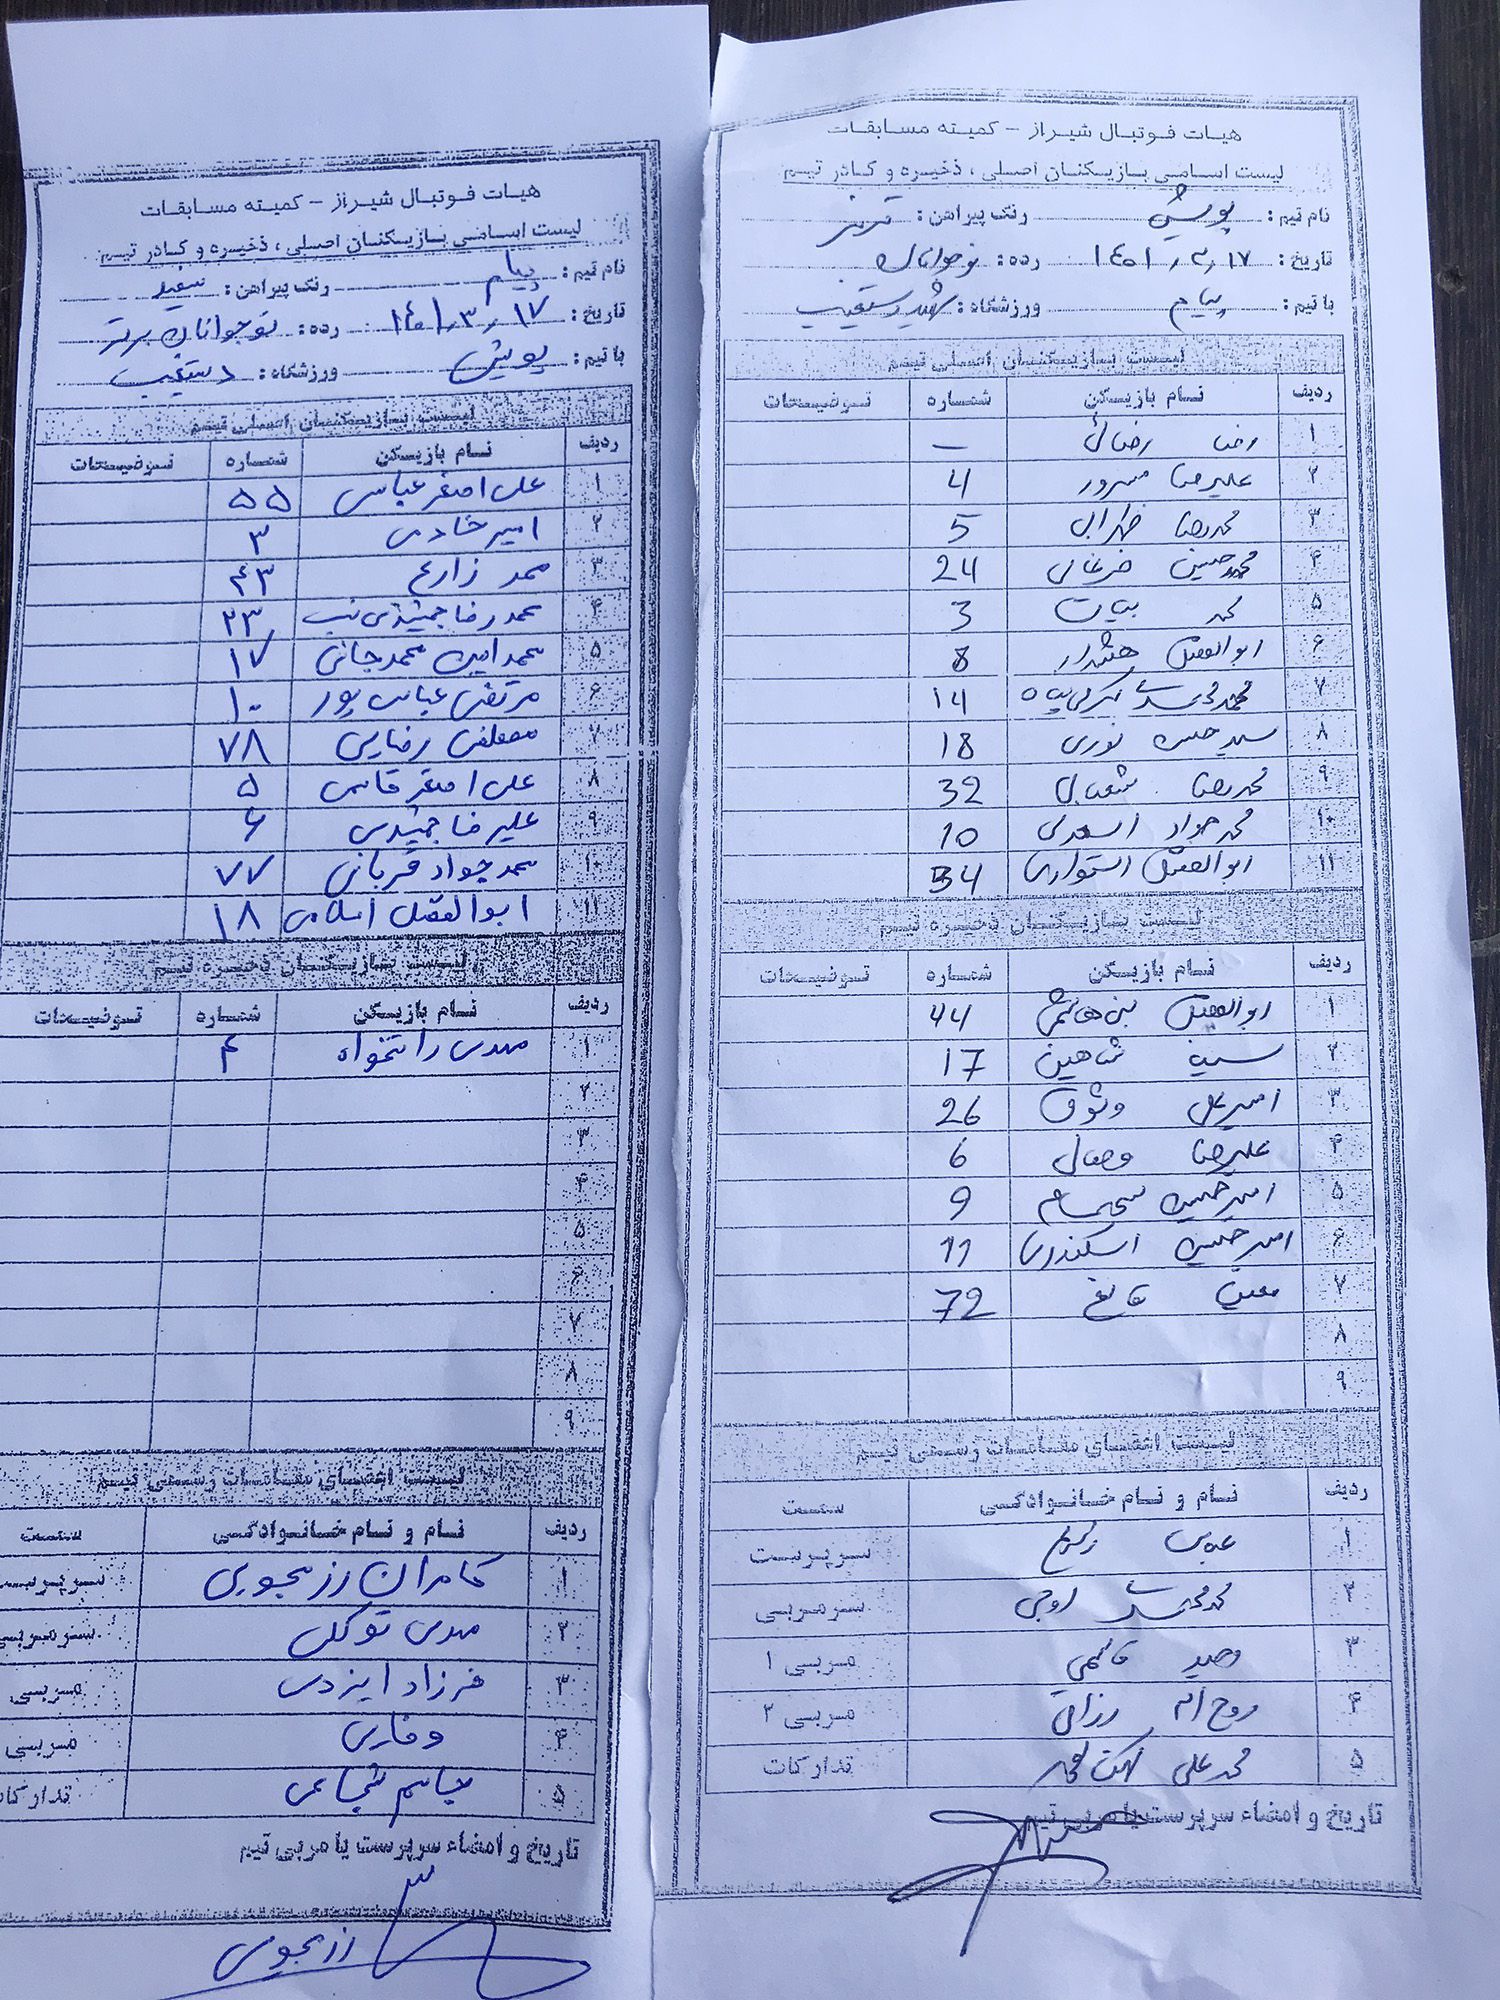 هیات فوتبال شیراز - کمیته مسابقات
لیست اسامی بازیکنان اصلی ، ذخیره و کادر تیم
نام تیم : پویش رنگ پیراهن : قرمز
تاریخ : ۱۴۰۱/۳/۱۷ رده : نوجوانان
با تیم : پیام ورزشگاه : شهید دستغیب
لیست بازیکنان اصلی تیم
ردیف نام بازیکن شماره توضیحات
۱ رضا رضائی –
۲ علیرضا مسرور 4
۳ محمدرضا 5
۴ محمدحسین ضرغامی 24
۵ محمد بیات 3
۶ ابوالفضل هشیار 8
۷ محمد 14
۸ سیدحسین نوری 18
۹ محمدرضا شعبانی 32
۱۰ محمدجواد اسعدی 10
۱۱ ابوالفضل استواری 34
لیست بازیکنان ذخیره تیم
ردیف نام بازیکن شماره توضیحات
۱ ابوالفضل بنی هاشمی 44
۲ سینا شاهین 17
۳ امیرعلی وثوق 26
۴ علیرضا وصالی 6
۵ امیرحسین 9
۶ امیرحسین اسکندری 11
۷ معین قانع 72
۸
۹
لیست اعضای مقامات رسمی تیم
ردیف نام و نام خانوادگی سمت
۱ سرپرست
۲ سرمربی
۳ وحید قاسمی مربی ۱
۴ روح اله رزاقی مربی ۲
۵ محمدعلی تدارکات
تاریخ و امضاء سرپرست یا مربی تیم
هیات فوتبال شیراز - کمیته مسابقات
لیست اسامی بازیکنان اصلی ، ذخیره و کادر تیم
نام تیم : پیام رنگ پیراهن : سفید
تاریخ : ۱۴۰۱/۳/۱۷ رده : نوجوانان برتر
با تیم : پویش ورزشگاه : دستغیب
لیست بازیکنان اصلی تیم
ردیف نام بازیکن شماره توضیحات
۱ علی اصغر عباسی ۵۵
۲ امیر خادمی ۳
۳ محمد زارع ۴۳
۴ محمدرضا جمشیدی نسب ۲۳
۵ محمدامین محمدجانی ۱۷
۶ مرتضی عباس پور ۱۰
۷ مصطفی رضایی ۷۸
۸ علی اصغر قاسمی ۵
۹ علیرضا جمشیدی ۶
۱۰ محمدجواد قربانی ۷۷
۱۱ ابوالفضل اسلامی ۱۸
لیست بازیکنان ذخیره تیم
ردیف نام بازیکن شماره توضیحات
۱ مهدی رانتخواه ۴
۲
۳
۴
۵
۶
۷
۸
۹
لیست اعضای مقامات رسمی تیم
ردیف نام و نام خانوادگی سمت
۱ کامران رزمجویی سرپرست
۲ مهدی توکلی سرمربی
۳ فرزاد ایزدی مربی
۴ وقاری مربی
۵ جاسم شجاعی تدارکات
تاریخ و امضاء سرپرست یا مربی تیم
رزمجویی